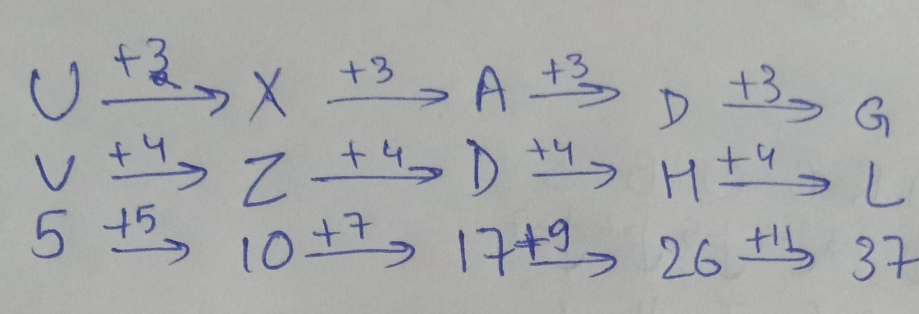 U +3 → X +3 → A +3 → D +3 → G
V +4 → Z +4 → D +4 → H +4 → L
5 +5 → 10 +7 → 17 +9 → 26 +11 → 37